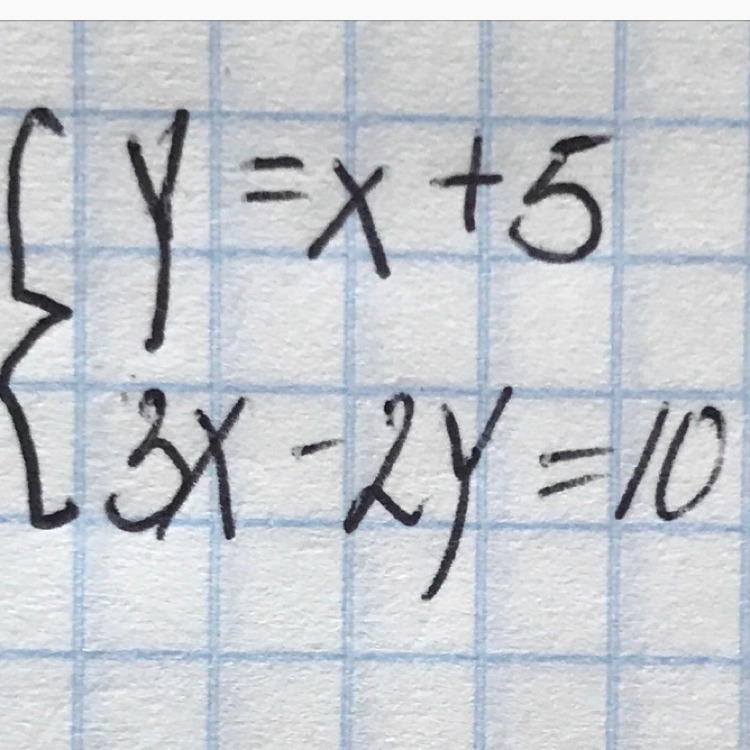 y = x + 5
3x - 2y = 10